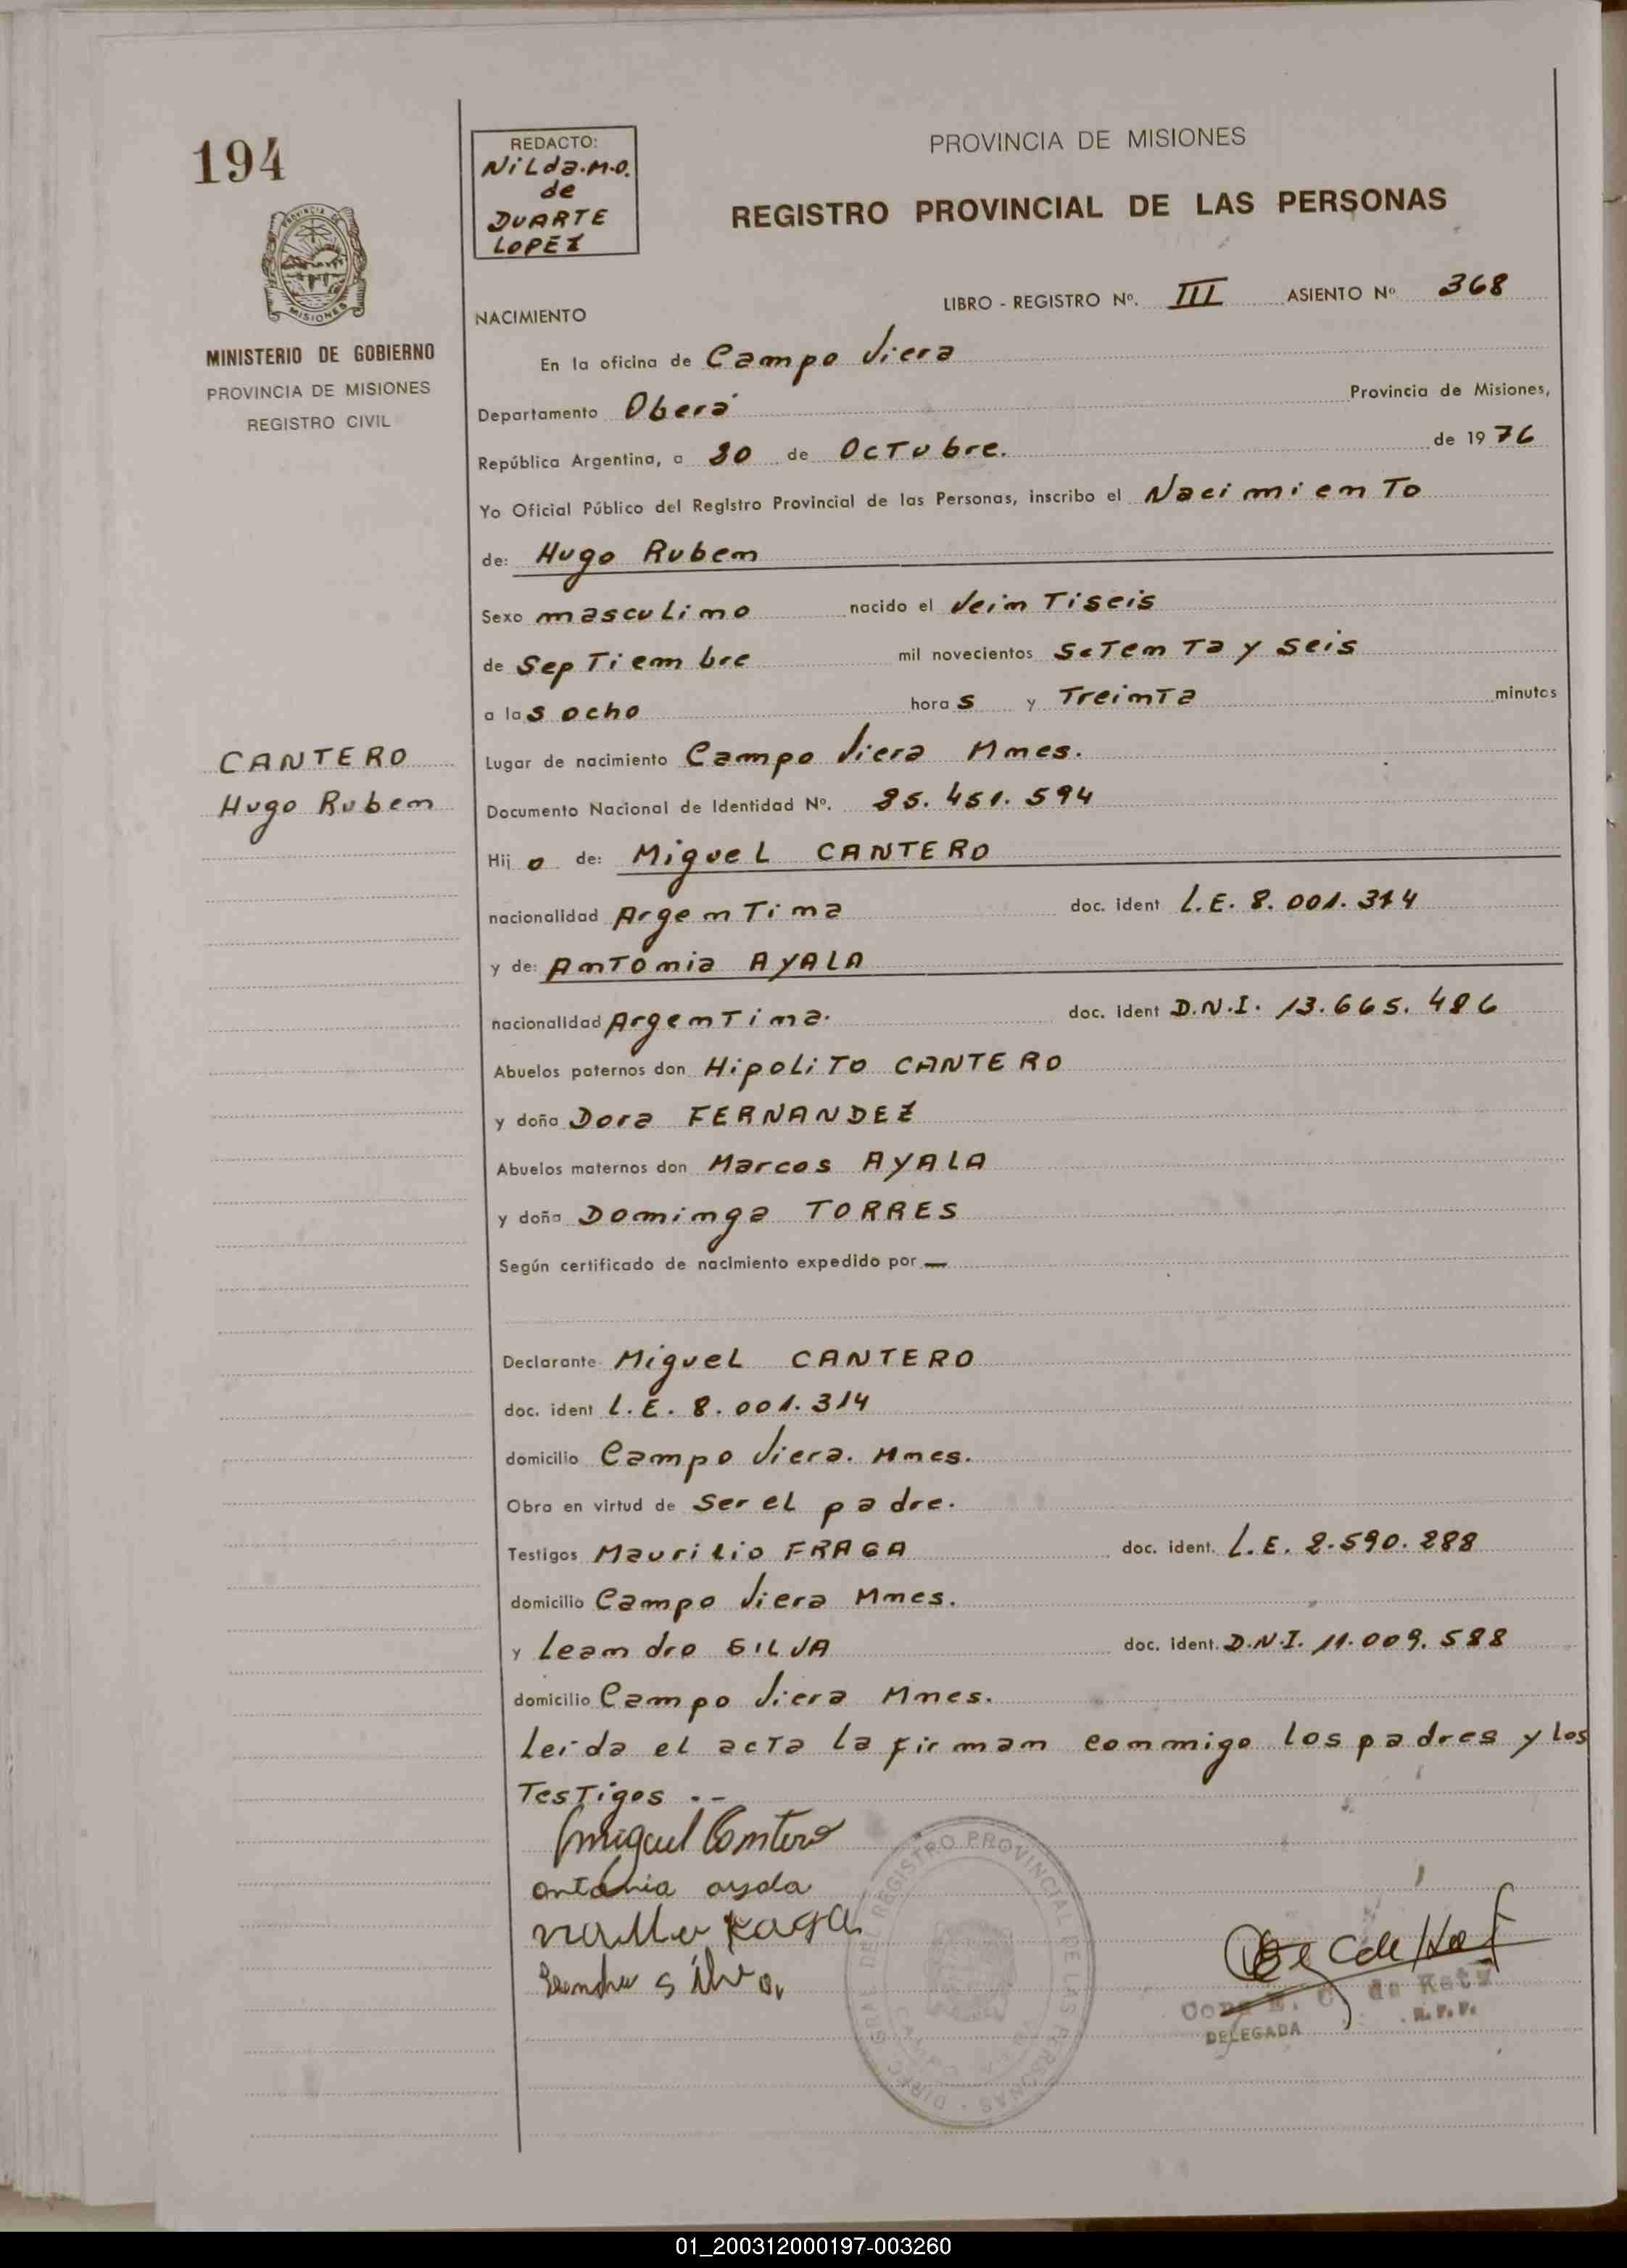 194
REDACTO:
Nilda.M.O.
de
DUARTE
LOPEZ
PROVINCIA DE MISIONES
REGISTRO PROVINCIAL DE LAS PERSONAS
PROVINCIA DE
MISIONES
MINISTERIO DE GOBIERNO
PROVINCIA DE MISIONES
REGISTRO CIVIL
NACIMIENTO
LIBRO - REGISTRO Nº. III ASIENTO Nº 368
En la oficina de Campo Viera
Departamento Oberá Provincia de Misiones,
República Argentina, a 30 de Octubre. de 1976
Yo Oficial Público del Registro Provincial de las Personas, inscribo el Nacimiento
de: Hugo Ruben
Sexo masculino nacido el Veintiseis
de Septiembre mil novecientos Setenta y seis
a las ocho horas y Treinta minutos
CANTERO
Hugo Ruben
Lugar de nacimiento Campo Viera Mnes.
Documento Nacional de Identidad Nº. 25.451.594
Hijo de: Miguel CANTERO
nacionalidad Argentina doc. ident L.E. 8.001.314
y de: Antonia AYALA
nacionalidad Argentina. doc. ident D.N.I. 13.665.486
Abuelos paternos don Hipolito CANTERO
y doña Dora FERNANDEZ
Abuelos maternos don Marcos AYALA
y doña Dominga TORRES
Según certificado de nacimiento expedido por —
Declarante Miguel CANTERO
doc. ident L.E. 8.001.314
domicilio Campo Viera. Mnes.
Obra en virtud de Ser el padre.
Testigos Maurilio FRAGA doc. ident. L.E. 2.590.288
domicilio Campo Viera Mnes.
y Leandro SILVA doc. ident. D.N.I. 11.009.588
domicilio Campo Viera Mnes.
Leida el acta la firman conmigo los padres y los
Testigos .-
Miguel Cantero
antonia ayala
Leandro Silva
DIREC. GRAL. DEL REGISTRO PROVINCIAL DE LAS PERSONAS
E. C. de
DELEGADA R.P.P.
01_200312000197-003260